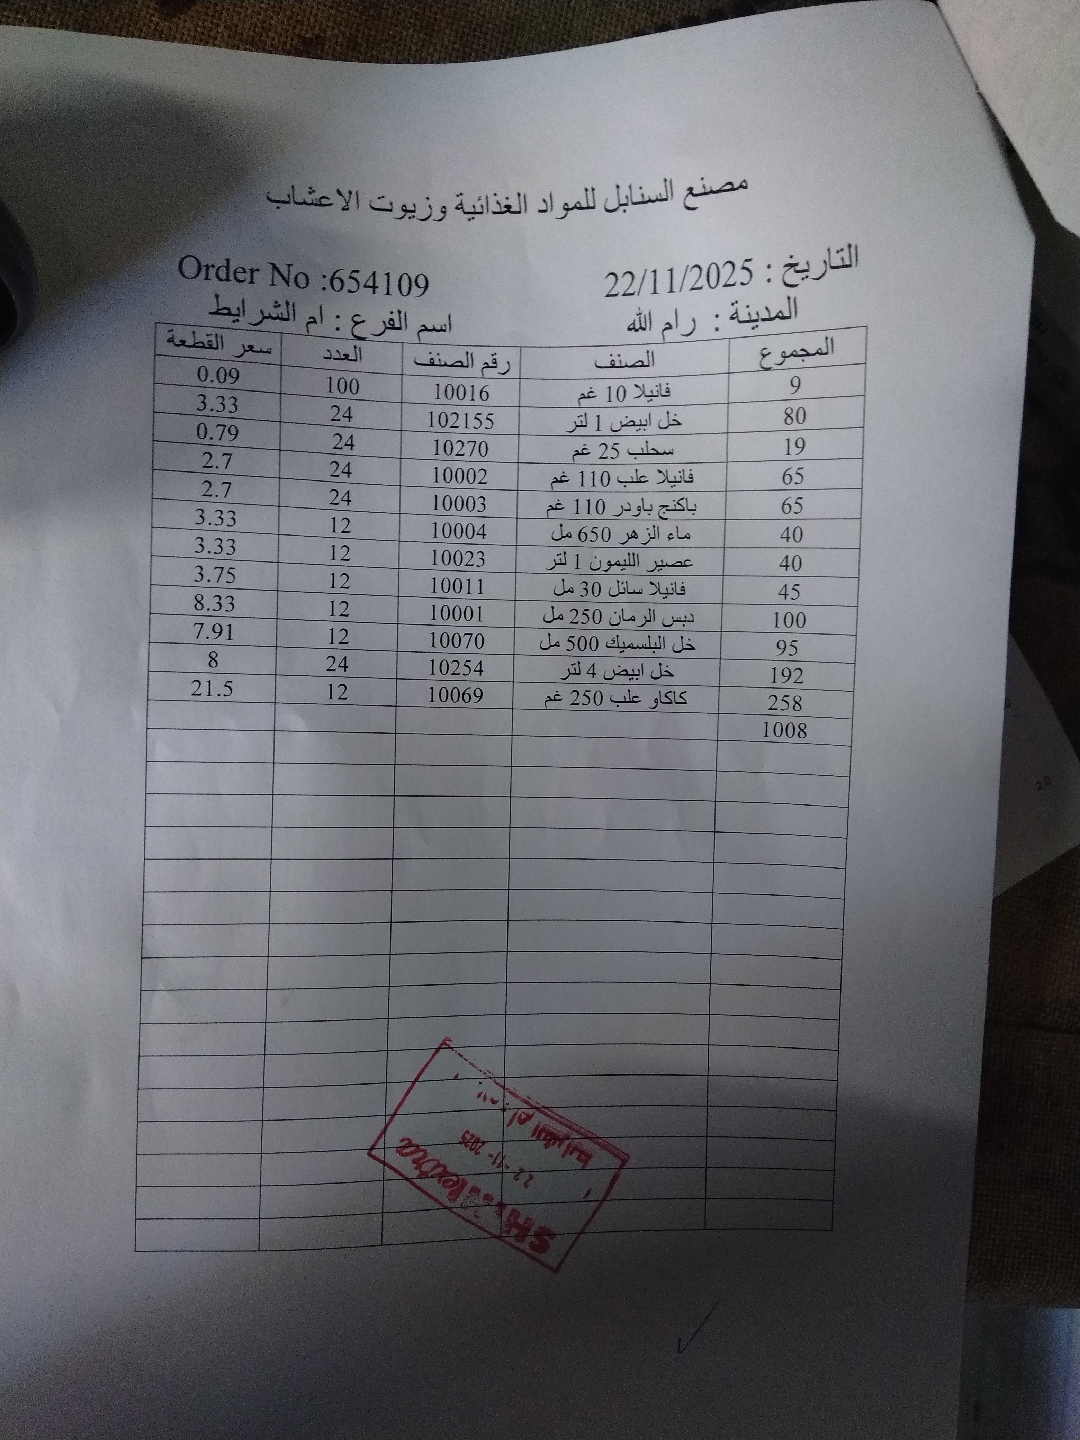 مصنع السنابل للمواد الغذائية وزيوت الاعشاب
التاريخ : 22/11/2025 Order No :654109
المدينة : رام الله اسم الفرع : ام الشرايط
المجموع الصنف رقم الصنف العدد سعر القطعة
9 فانيلا 10 غم 10016 100 0.09
80 خل ابيض 1 لتر 102155 24 3.33
19 سحلب 25 غم 10270 24 0.79
65 فانيلا علب 110 غم 10002 24 2.7
65 باكنج باودر 110 غم 10003 24 2.7
40 ماء الزهر 650 مل 10004 12 3.33
40 عصير الليمون 1 لتر 10023 12 3.33
45 فانيلا سائل 30 مل 10011 12 3.75
100 دبس الرمان 250 مل 10001 12 8.33
95 خل البلسميك 500 مل 10070 12 7.91
192 خل ابيض 4 لتر 10254 24 8
258 كاكاو علب 250 غم 10069 12 21.5
1008
22-11-2025
ام الشرايط
20